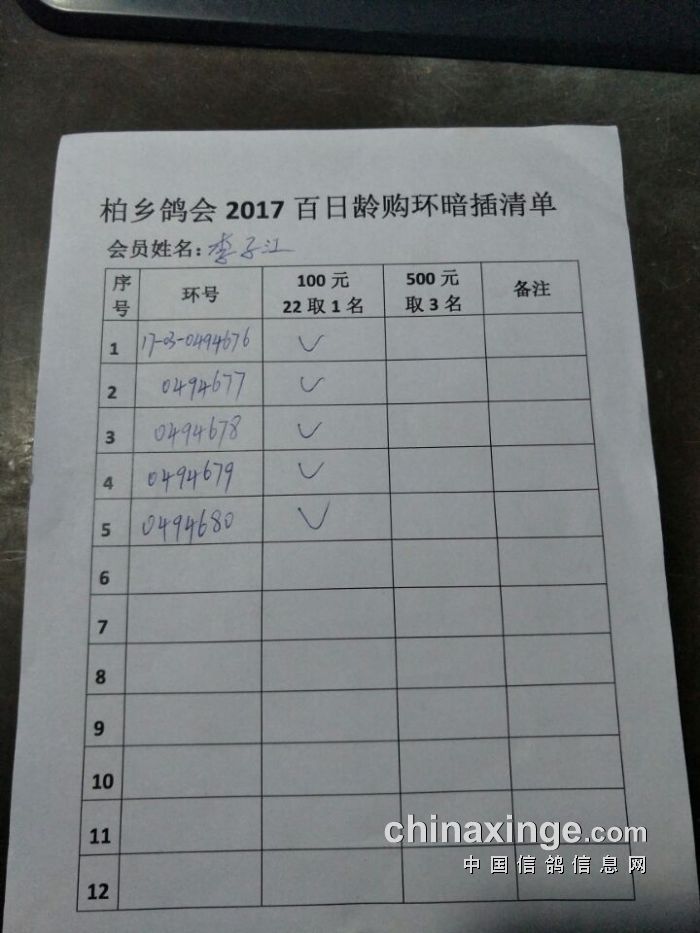 柏乡鸽会2017百日龄购环暗插清单
会员姓名:李子江
序号 环号 100元 22取1名 500元 取3名 备注
1 17-03-0494676 ✓
2 0494677 ✓
3 0494678 ✓
4 0494679 ✓
5 0494680 ✓
6
7
8
9
10
11
12
chinaxinge.com
中国信鸽信息网